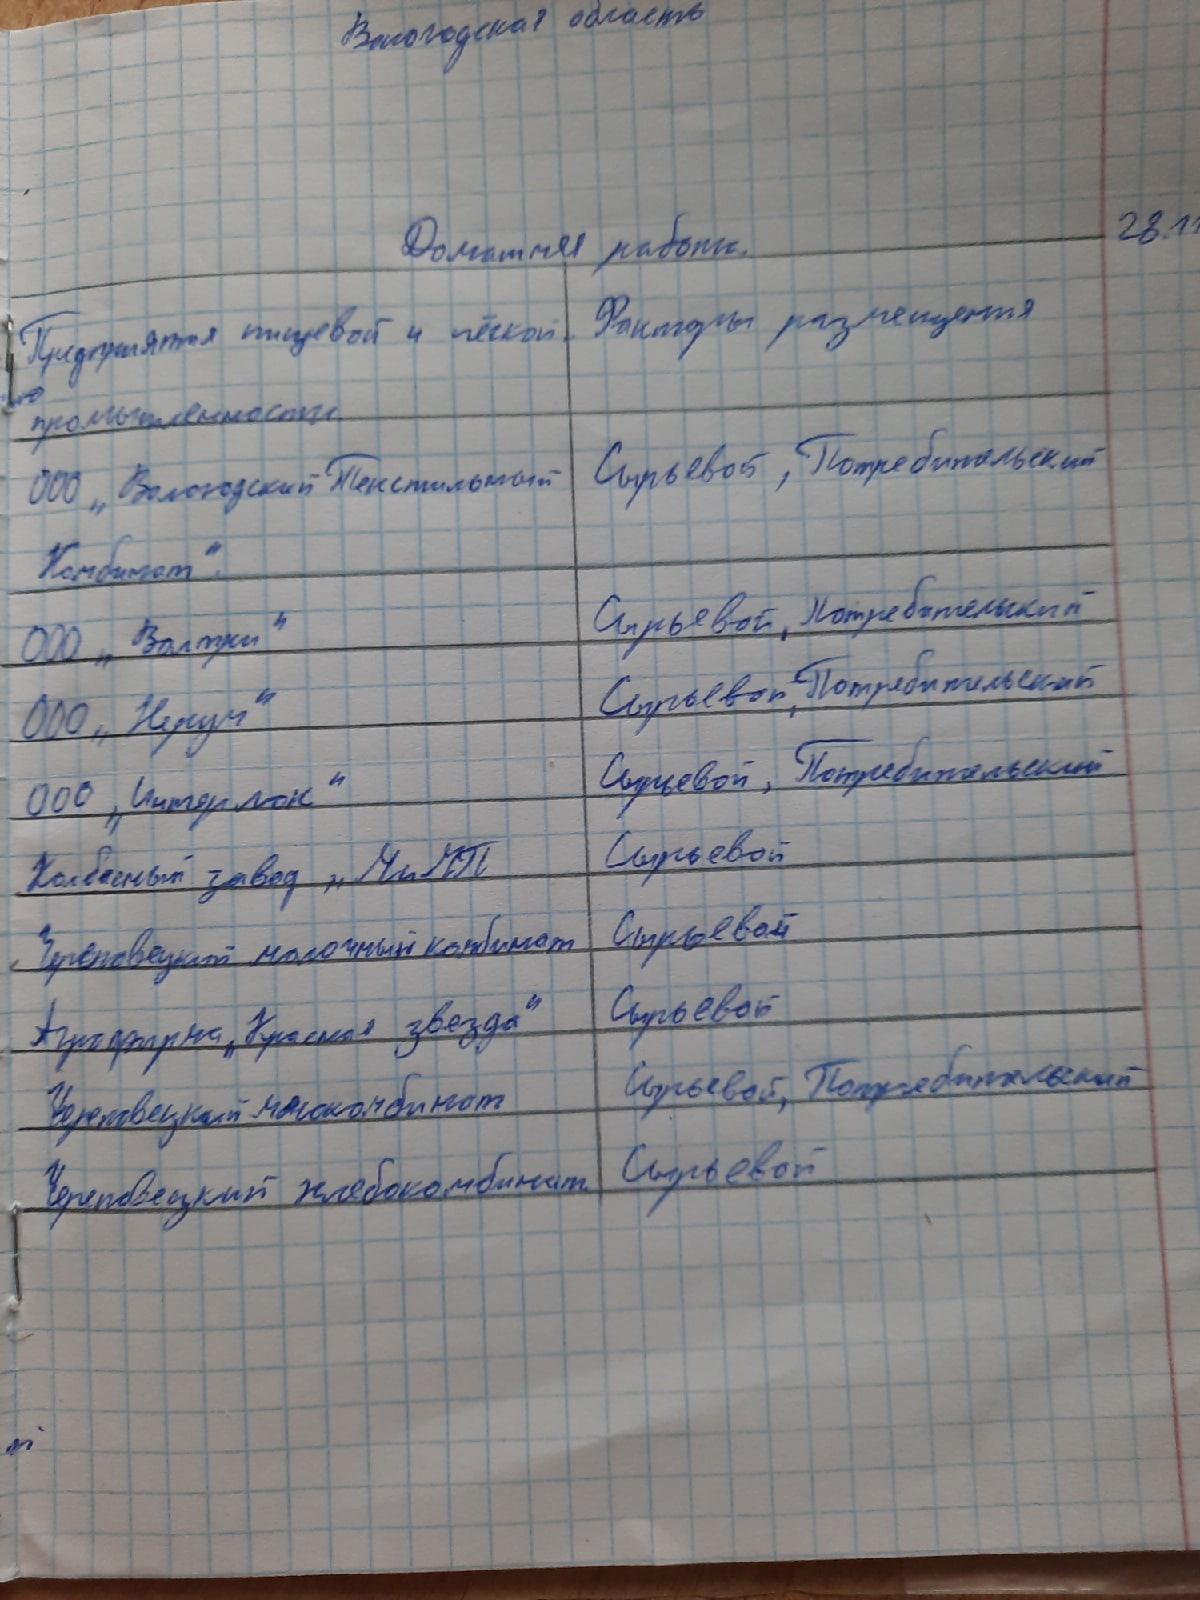 Вологодская область
Домашняя работа. 28.11
Предприятия пищевой и лёгкой Факторы размещения
промышленности
ООО „Вологодский Текстильный Сырьевой, Потребительский
Комбинат“.
ООО „Валтри“ Сырьевой, Потребительский
ООО „ “ Сырьевой, Потребительский
ООО „Интерлок“ Сырьевой, Потребительский
Колбасный завод „МиМП Сырьевой
Череповецкий молочный комбинат Сырьевой
Агрофирма „Красная звезда“ Сырьевой
Череповецкий мясокомбинат Сырьевой, Потребительский
Череповецкий хлебокомбинат Сырьевой